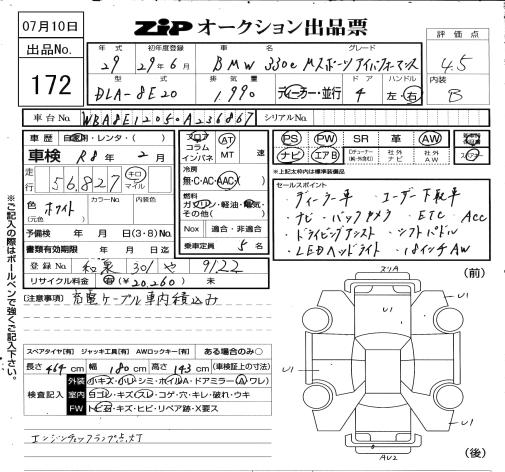 07月10日
ZiP オークション出品票
出品No. 172
評価点 4.5
内装 B
年式 29
初年度登録 29年6月
車名 グレード
BMW 330e Mスポーツ アイパフォーマンス
型式 DLA-8E20
排気量 1,990
ディーラー・並行
ドア 4
ハンドル 左・右
車台No. WBA8E12050A236867
シリアルNo.
車歴 自家用・レンタ・( )
車検 R8年 2月
走行 56,827 キロ マイル
色 (元色) ホワイト
カラーNo.
内装色
予備検 年 月 日(3・8)No.
書類有効期限 年 月 日迄
登録No. 和泉 301 や 9122
リサイクル料金 有(¥20,260) 未
フロア コラム インパネ
AT MT 速
冷房 無・C・AC・AAC・( )
燃料 ガソリン・軽油・電気・その他( )
Nox 適合・非適合
乗車定員 5名
PS PW SR 革 AW
ナビ エアB
TVチューナー(純・外含む)
社外ナビ
社外AW
*上記太枠内は標準装備品
セールスポイント
・ディーラー車 ・ユーザー下取車
・ナビ ・バックカメラ ・ETC ・Acc
・ドライビングアシスト ・シフトパドル
・LEDヘッドライト ・18インチAW
※ご記入の際はボールペンで強くご記入下さい。
注意事項 充電ケーブル車内積込み
スペアタイヤ[有] ジャッキ工具[有] AWロックキー[有] ある場合のみ○
長さ 464cm 幅 180cm 高さ 143cm (車検証上の寸法)
検査記入
外装 小キズ・小凹・シミ・ホイルA・ドアミラー(A・ワレ)
室内 ヨゴレ・キズ・スレ・コゲ・穴・キレ・破れ・ウキ
FW トビ石・キズ・ヒビ・リペア跡・X要ス
エンジンチェックランプ点灯
スリA
(前)
U1
U1
U1
U1
AU2
(後)